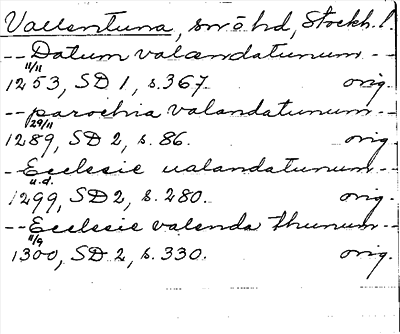 Vallentuna, sn o hd, Stockh. l.
-- Datum valændatunum --
11/11
1253, SD 1, s. 367. orig.
-- parochia valandatunum --
29/11
1289, SD 2, s. 86. orig.
-- Ecclesie ualandatunum --
u.d.
1299, SD 2, s. 280. orig.
-- Ecclesie valenda thunum --
11/9
1300, SD 2, s. 330. orig.